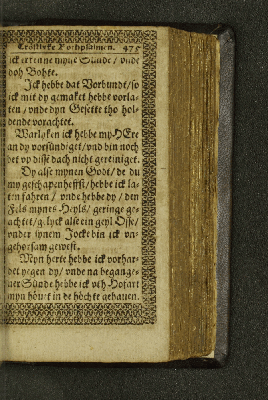 Tröstlyke Bothpsalmen. 475
ick erkenne myne Sünde / vnde
doh Bohte.
Ick hebbe dat Vorbundt / so
ick mit dy gemaket hebbe vorla-
ten / vnde dyn Gesette tho hol-
dende vorachtet.
Warlyken ick hebbe my HEre
an dy vorsündiget / vnd bin noch
bet vp dissē dach nicht gereiniget.
Dy alse mynen Godt / de du
my geschapen heffst / hebbe ick la-
ten fahren / vnde hebbe dy / den
Fels mynes Heyls / geringe ge-
achtet / gelyck alse ein geyl Osse /
vnder synem Jocke bin ick vn-
gehorsam gewest.
Myn herte hebbe ick vorhar-
det yegen dy / vnde na begange-
ner Sünde hebbe ick vth Hofart
myn höuet in de höchte gehauen.